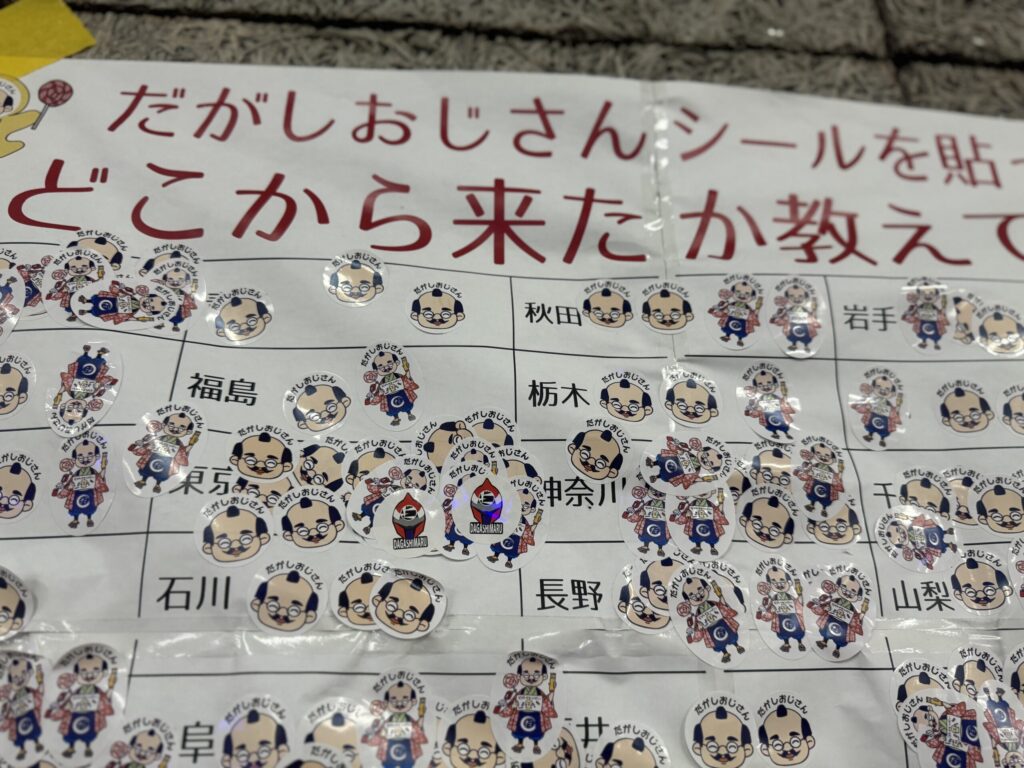 だがしおじさんシールを貼っ
どこから来たか教えて
秋田
岩手
福島
栃木
東京
神奈川
千
石川
長野
山梨
阜
井
だがしおじさん
DAGASHIMARU
DAGASHIMARU